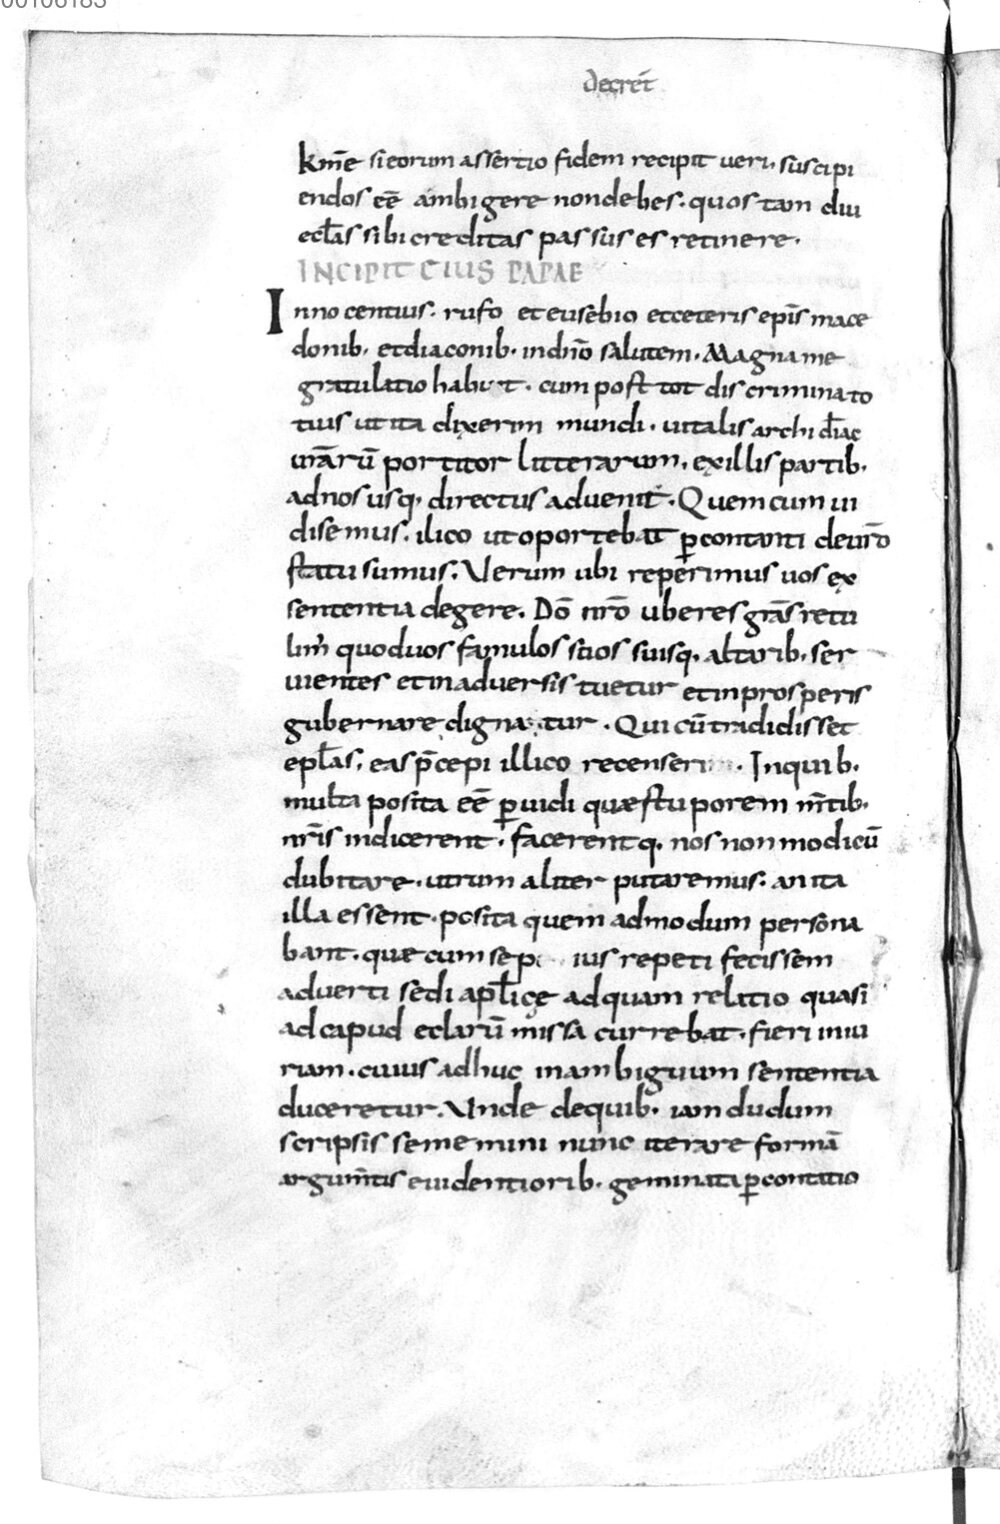 00106183
decret̄
km̄e si eorum assertio fidem recipit ueri, suscipi
endos eē ambigere non debes. quos tam diu
ecl̄as sibi creditas passus es retinere.
INCIPIT EIUS PAPAE
Innocentius. rufo et eusebio et ceteris ep̄is mace
donib. et diaconib. in dn̄o salutem. Magna me
gratulatio habuit. cum post tot discrimina to
tius ut ita dixerim mundi. uitalis archi diāc
ur̄arū portitor litterarum. ex illis partib.
ad nos usq. directus aduenit. Quem cum ui
disemus. ilico ut oportebat ꝑcontanti de ur̄o
statu sumus. Uerum ubi reperimus uos ex
sententia degere. Dō nr̄o uberes grās retu
lim̄ quod uos famulos sc̄os suisq. altarib. ser
uientes et in aduersis tuetur et in prosperis
gubernare digna tur. Qui cū tradidisset
epl̄as, eas p̄cepi illico recenseri. In quib.
multa posita eē ꝑuidi quæ stuporem m̄tib.
nr̄is indicerent. facerentq. nos non modicū
dubitare. utrum aliter putaremus. an ita
illa essent. posita quem admodum persona
bant. quæ cum sep ius repeti fecissem
aduerti sedi apl̄icę ad quam relatio quasi
ad capud eclarū missa currebat. fieri iniu
riam. cuius adhuc in ambiguum sententia
duceretur. Unde de quib. iam dudum
scripsisse memini nunc iterare formā
argum̄tis euidentiorib. geminata ꝑcontatio